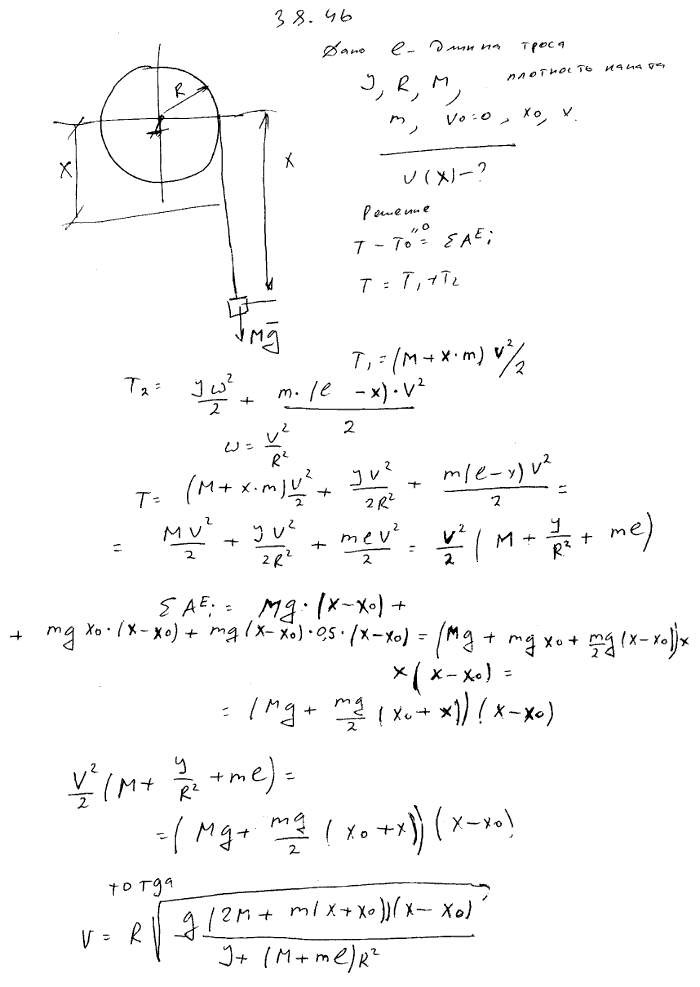 38.46
Дано l - длина троса
J, R, M, плотность каната
m, V₀=0, x₀, x.
V(x)-?
Решение
T - T₀ = ΣAᴱᵢ
"0
T = T₁ + T₂
R
x
x
Mg̅
T₁ = (M + x·m) V²/2
T₂ = Jω²/2 + m·(l - x)·V²/2
ω = V²/R²
T = (M + x·m) V²/2 + JV²/2R² + m(l-x)V²/2 =
= MV²/2 + JV²/2R² + mlV²/2 = V²/2 (M + J/R² + ml)
ΣAᴱᵢ = Mg·(x-x₀) +
+ mg x₀·(x-x₀) + mg(x-x₀)·0,5·(x-x₀) = (Mg + mg x₀ + mg/2 (x-x₀))×
×(x-x₀) =
= (Mg + mg/2 (x₀+x))(x-x₀)
V²/2 (M + J/R² + ml) =
= (Mg + mg/2 (x₀+x))(x-x₀)
тогда
V = R√(g(2M + m(x+x₀))(x-x₀) / J + (M+ml)R²)